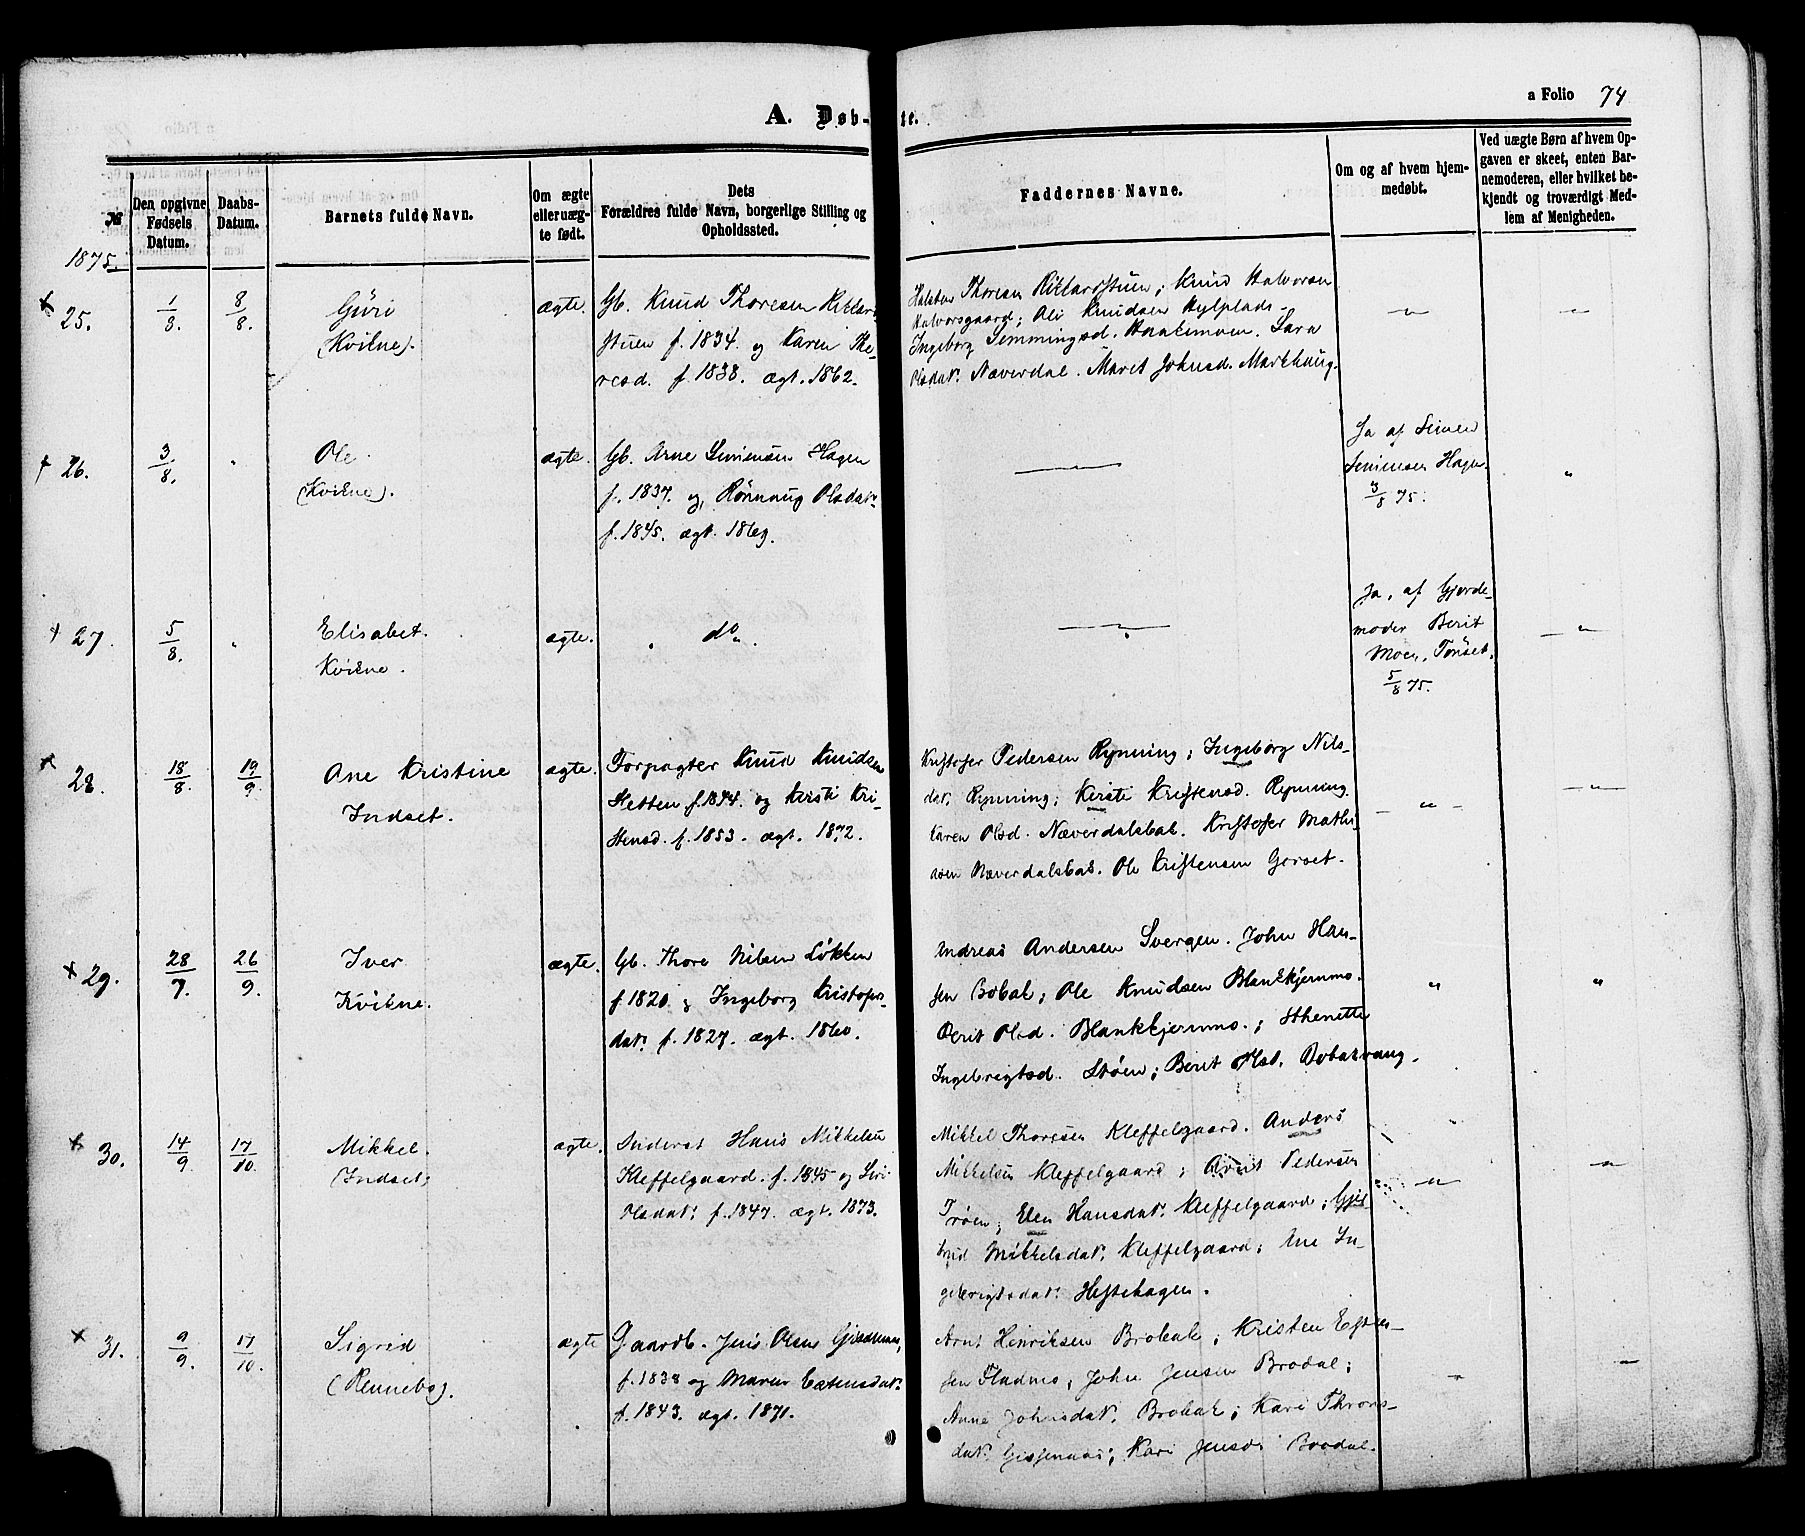 a Folio 74
A. Døb-te.
№
Den opgivne Fødsels Datum.
Daabs-Datum.
Barnets fulde Navn.
Om ægte eller uæg-te født.
Dets Forældres fulde Navn, borgerlige Stilling og Opholdssted.
Faddernes Navne.
Om og af hvem hjem-medøbt.
Ved uægte Børn af hvem Op-gaven er skeet, enten Bar-nemoderen, eller hvilket be-kjendt og troværdigt Med-lem af Menigheden.
1875.
25. 1/8. 8/8.
Guri
(Kvikne).
ægte.
Gb. Knud Thoresen
stuen f. 1834. og Karen Tho-
resd. f. 1838. ægt. 1862.
Halsten Thoresen; Knud Halvorsen
Halvorsgaard; Ole Knudsen
Ingeborg Simmingsd. Sara
Olsdat. Næverdal. Marit Johnsd.
26. 3/8.
Ole.
(Kvikne).
ægte.
Gb. Arne Simensen Hagen
f. 1837. og Rønnaug Olsdat.
f. 1845. ægt. 1869.
Ja af Simen
Simensen Hagen
3/8 75.
27. 5/8.
Elisabet.
Kvikne.
ægte.
do.
Ja, af Gjorde-
moder Berit
Moen, Tønset.
5/8 75.
28. 18/8. 19/9.
Ane Kristine
Indset.
ægte.
Forpagter Knud Knudsen
Stetten f. 1844. og Kirsti Kri-
stensd. f. 1853. ægt. 1872.
Kristofer Pedersen Rynning; Ingeborg Nils-
dat. Rynning; Kirsti Kristensd. Rynning.
Karen Olsd. Næverdalsbak. Kristofer Mathi-
sen Næverdalsbak. Ole Kristensen Gorset.
29. 28/7. 26/9.
Iver
Kvikne.
ægte.
Gb. Thore Nilsen Løkken
f. 1820. og Ingeborg Kristofers-
dat. f. 1827. ægt. 1860.
Andreas Andersen Svergen. John Han-
sen Bobak; Ole Knudsen Blankkjernmo.
Berit Olsd. Blankkjernmo.; Sthenette
Ingebrigtsd. Støen; Berit Olsd. Bobakvang.
30. 14/9 17/10.
Mikkel.
Indset.
ægte.
Inderst Hans Mikkelsen
Kleffelgaard. f. 1845 og Siri
Olsdat. f. 1847. ægt. 1873.
Mikkel Thoresen Kleffelgaard. Anders
Mikkelsen Kleffelgaard; Arnt Pedersen
Trøen; Elen Hansdat. Kleffelgaard; Gjer-
trud Mikkelsdat. Kleffelgaard; Ane In-
gebrigtsdat. Heftehagen.
31. 9/9. 17/10.
Sigrid
(Rennebo).
ægte
Gaardb. Jens Olsen
f. 1838 og Maren Estensdat.
f. 1843. ægt. 1871.
Arnt Henriksen Brobak; Kristen Esten-
sen Fladmo; John Jensen Brodal;
Anne Johnsdat. Brobak; Kari Thrond-
dat.; Kari Jensd. Brodal.